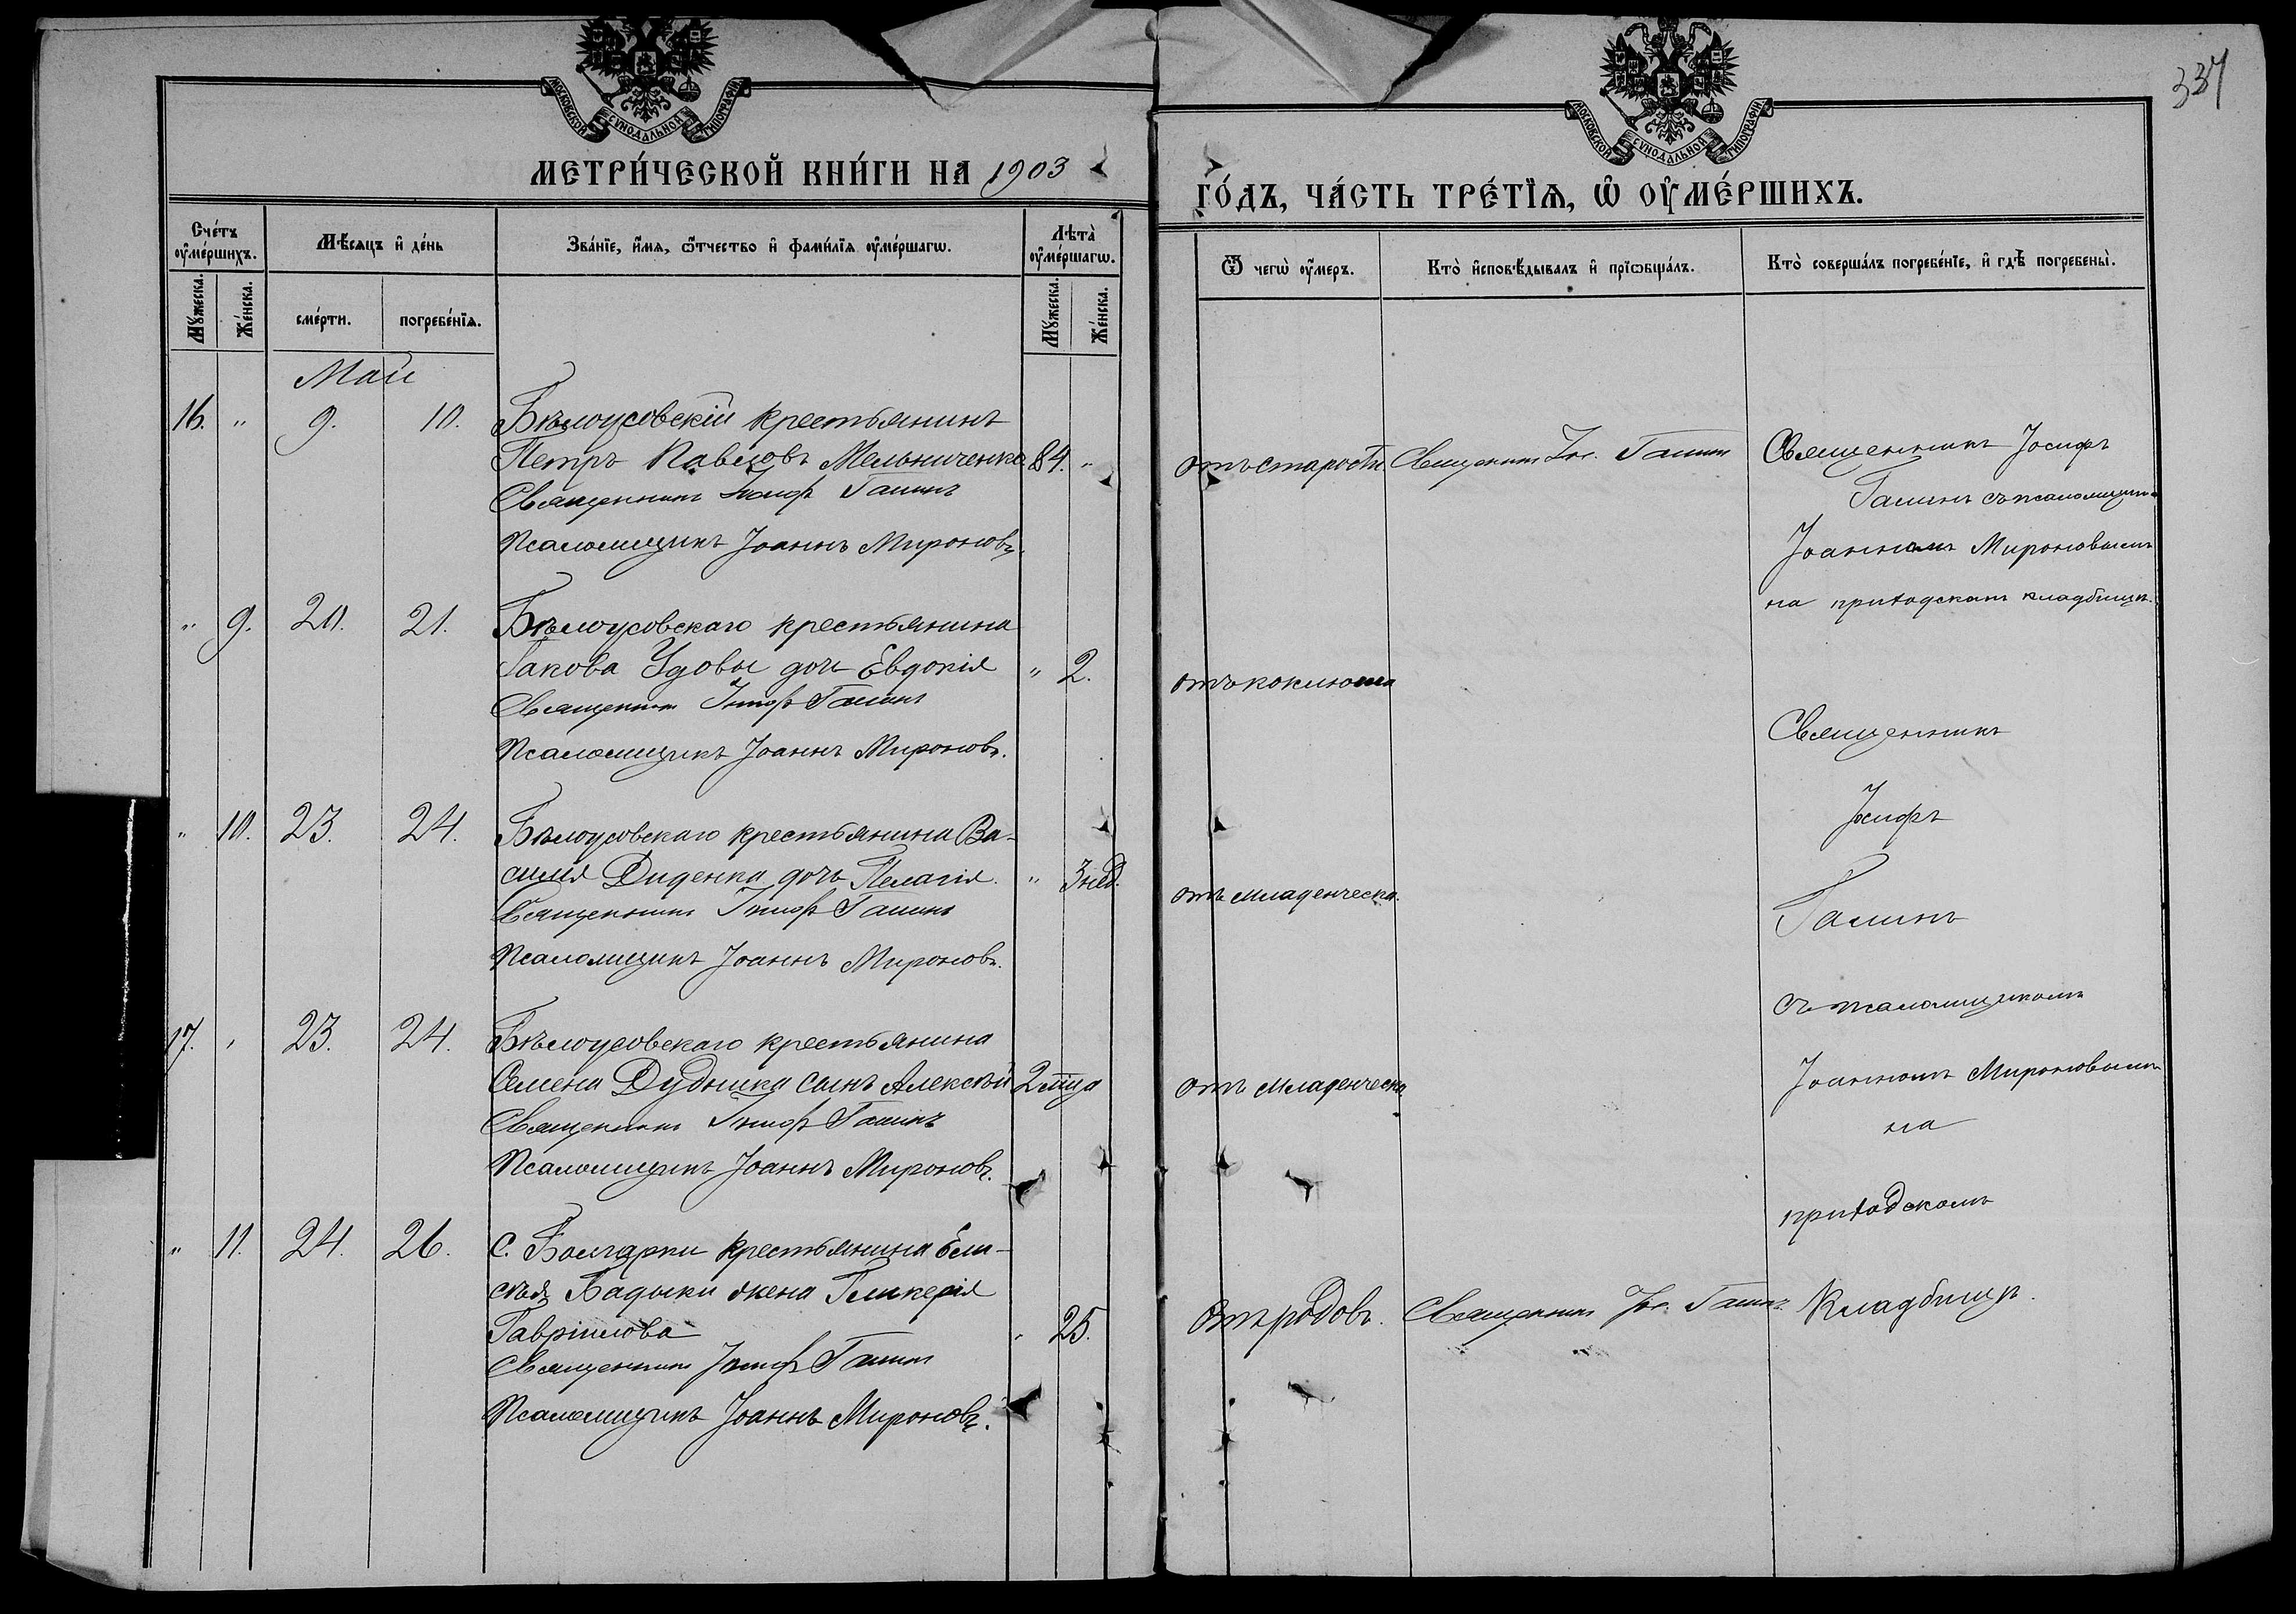 337
МОСКОВСКОЙ СѴНОДАЛЬНОЙ ТИПОГРАФІИ
МОСКОВСКОЙ СѴНОДАЛЬНОЙ ТИПОГРАФІИ
МЕТРИ́ЧЕСКОЙ КНИ́ГИ НА 1903
ГО́ДЪ, ЧА́СТЬ ТРЕ́ТЇѦ, Ѡ ОУ҆МЕ́РШИХЪ.
Сче́тъ оу҆ме́ршихъ.
Мѣ́сяцъ и҆ де́нь
Зва́нїе, и҆́мя, ѻ҆́тчество и҆ фами́лїя оу҆ме́ршагѡ.
Лѣта̀ оу҆ме́ршагѡ.
Ѿ чегѡ̀ оу҆́меръ.
Кто̀ и҆сповѣ́дывалъ и҆ прїѡбща́лъ.
Кто̀ соверша́лъ погребе́нїе, и҆ гдѣ̀ погребены̀.
Мꙋ́жеска. Же́нска.
сме́рти. погребе́нїя.
Мꙋ́жеска. Же́нска.
Май
16. " 9. 10. Бѣлоусовскій крестьянинъ
Петръ Павловъ Мельниченко 84. "
Священникъ Іосифъ Галинъ
Псаломщикъ Іоаннъ Мироновъ.
отъ старости Священникъ Іос. Галинъ Священникъ Іосифъ
Галинъ съ псаломщик
Іоанномъ Мироновымъ
на приходскомъ кладбищѣ.
" 9. 20. 21. Бѣлоусовскаго крестьянина
Іакова Удовы дочь Евдокія " 2.
Священникъ Іосифъ Галинъ
Псаломщикъ Іоаннъ Мироновъ.
отъ коклюша
Священникъ
" 10. 23. 24. Бѣлоусовскаго крестьянина Ва-
силія Диденка дочь Пелагія. " 3 нед.
Священникъ Іосифъ Галинъ
Псаломщикъ Іоаннъ Мироновъ.
отъ младенческа.
Іосифъ
Галинъ
съ псаломщикомъ
17. " 23. 24. Бѣлоусовскаго крестьянина
Семена Дудника сынъ Алексѣй 2 мца
Священникъ Іосифъ Галинъ
Псаломщикъ Іоаннъ Мироновъ.
отъ младенческа.
Іоанномъ Мироновымъ
на
приходскомъ
" 11. 24. 26. С. Болгарки крестьянина Ели-
сѣя Бадыки жена Гликерія
Гавріилова " 25.
Священникъ Іосифъ Галинъ
Псаломщикъ Іоаннъ Мироновъ.
отъ родовъ. Священникъ Іос. Галинъ Кладбищѣ.